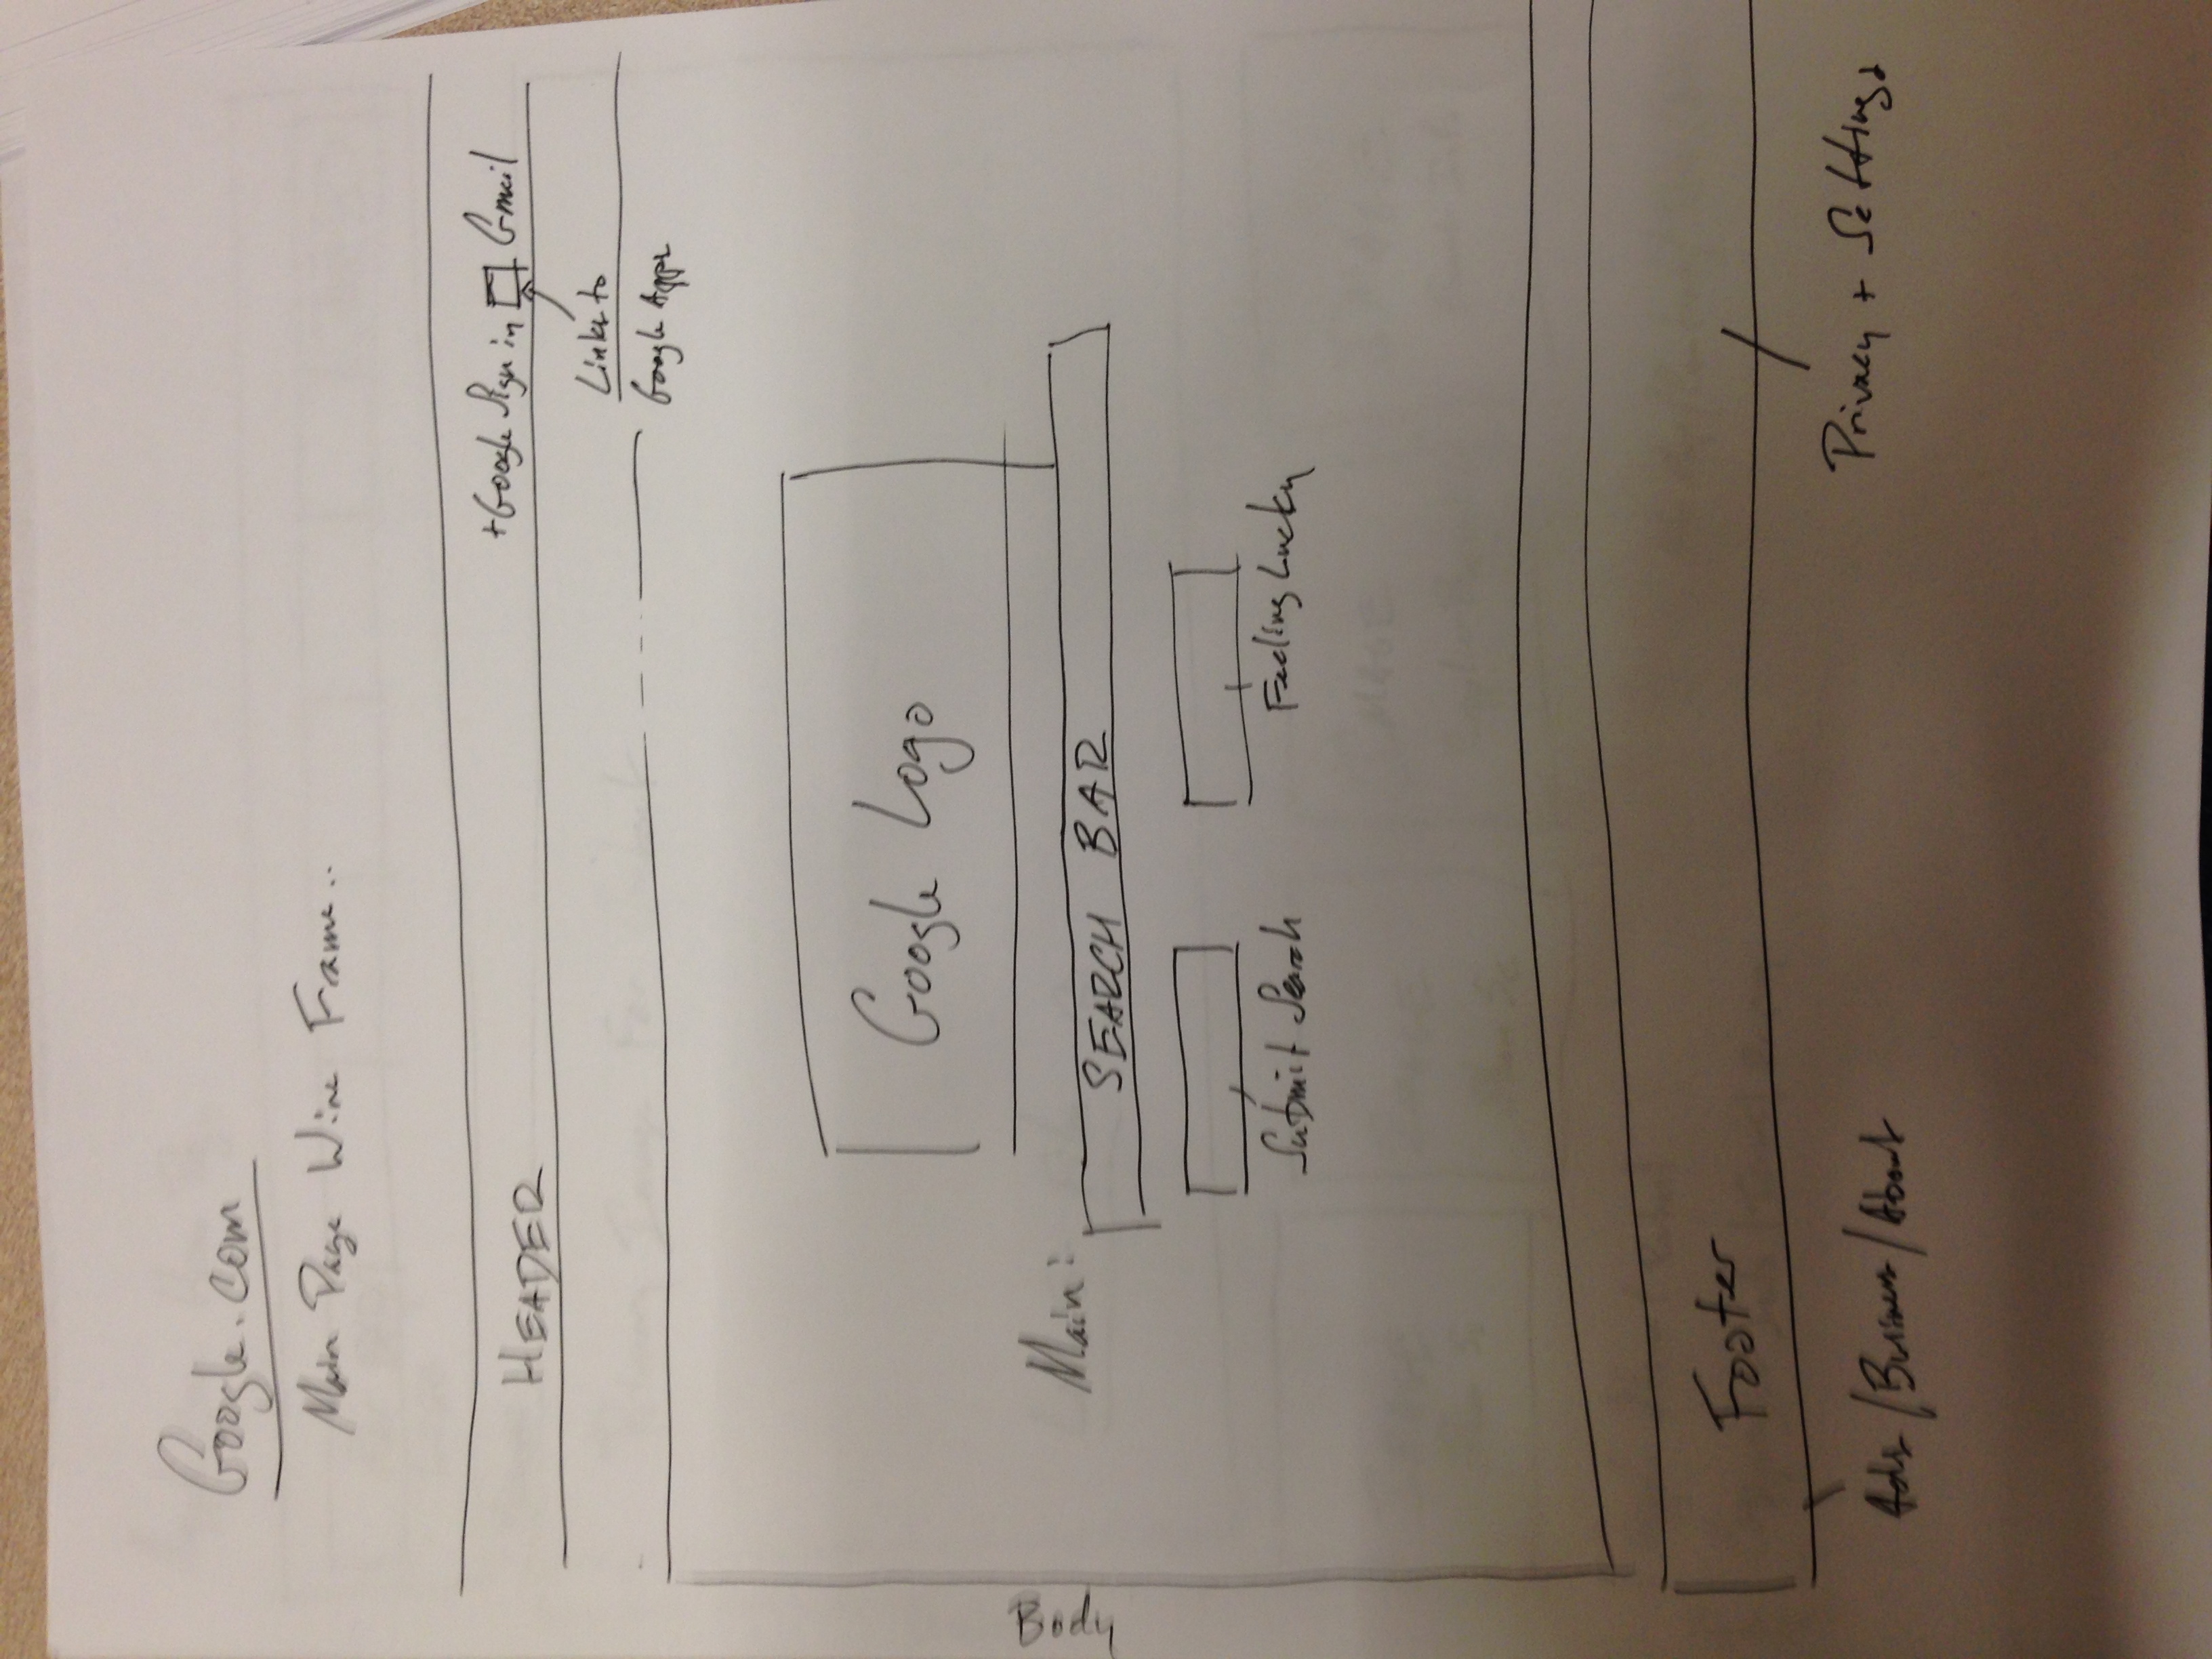 Google.com
Main Page Wire Frame..
HEADER
+Google Sign in Gmail
Links to
Google Apps
Google Logo
Body
Main:
SEARCH BAR
Submit Search
Feeling Lucky
Footer
Ads/Business/About
Privacy + Settings